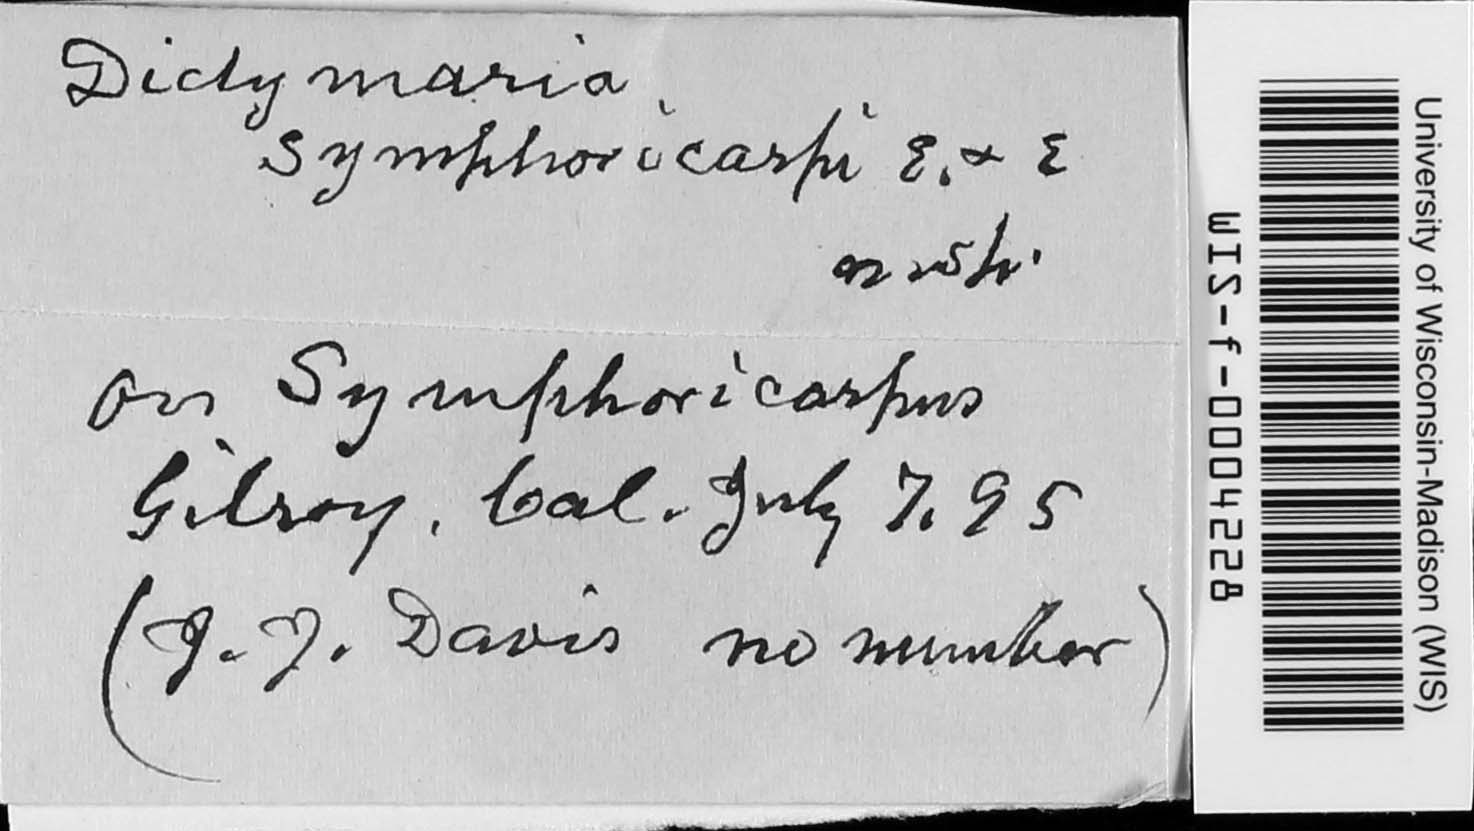 Didymaria
Symphoricarpi E. & E
n sp.
on Symphoricarpus
Gilroy, Cal. July 7. 95
(J. J. Davis no number)
University of Wisconsin-Madison (WIS)
WIS-f-0004228